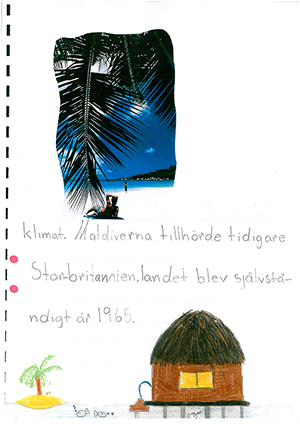 klimat. Maldiverna tillhörde tidigare
Storbritannien, landet blev självstä-
ndigt år 1965.